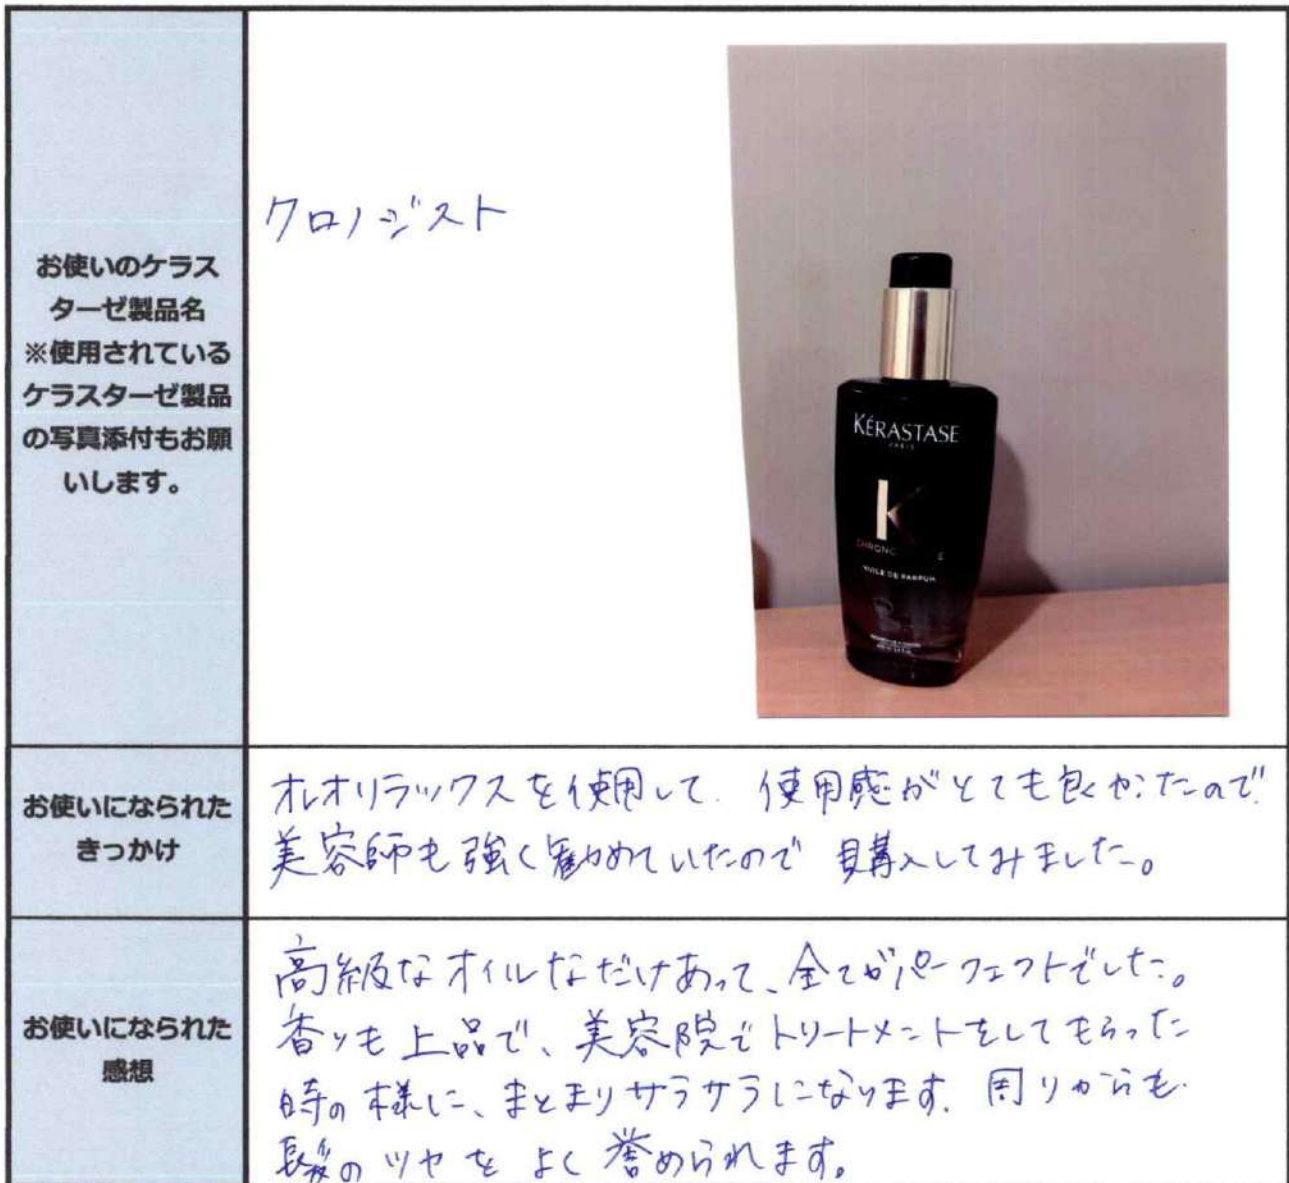 お使いのケラス
ターゼ製品名
※使用されている
ケラスターゼ製品
の写真添付もお願
いします。
クロノジスト
KÉRASTASE
PARIS
K
HUILE DE PARFUM
お使いになられた
きっかけ
オレオリラックスを使用して、使用感がとても良かったので、
美容師も強く勧めていたので 購入してみました。
お使いになられた
感想
高級なオイルなだけあって、全てがパーフェクトでした。
香りも上品で、美容院でトリートメントをしてもらった
時の様に、まとまりサラサラになります。周りからも
髪のツヤを よく誉められます。